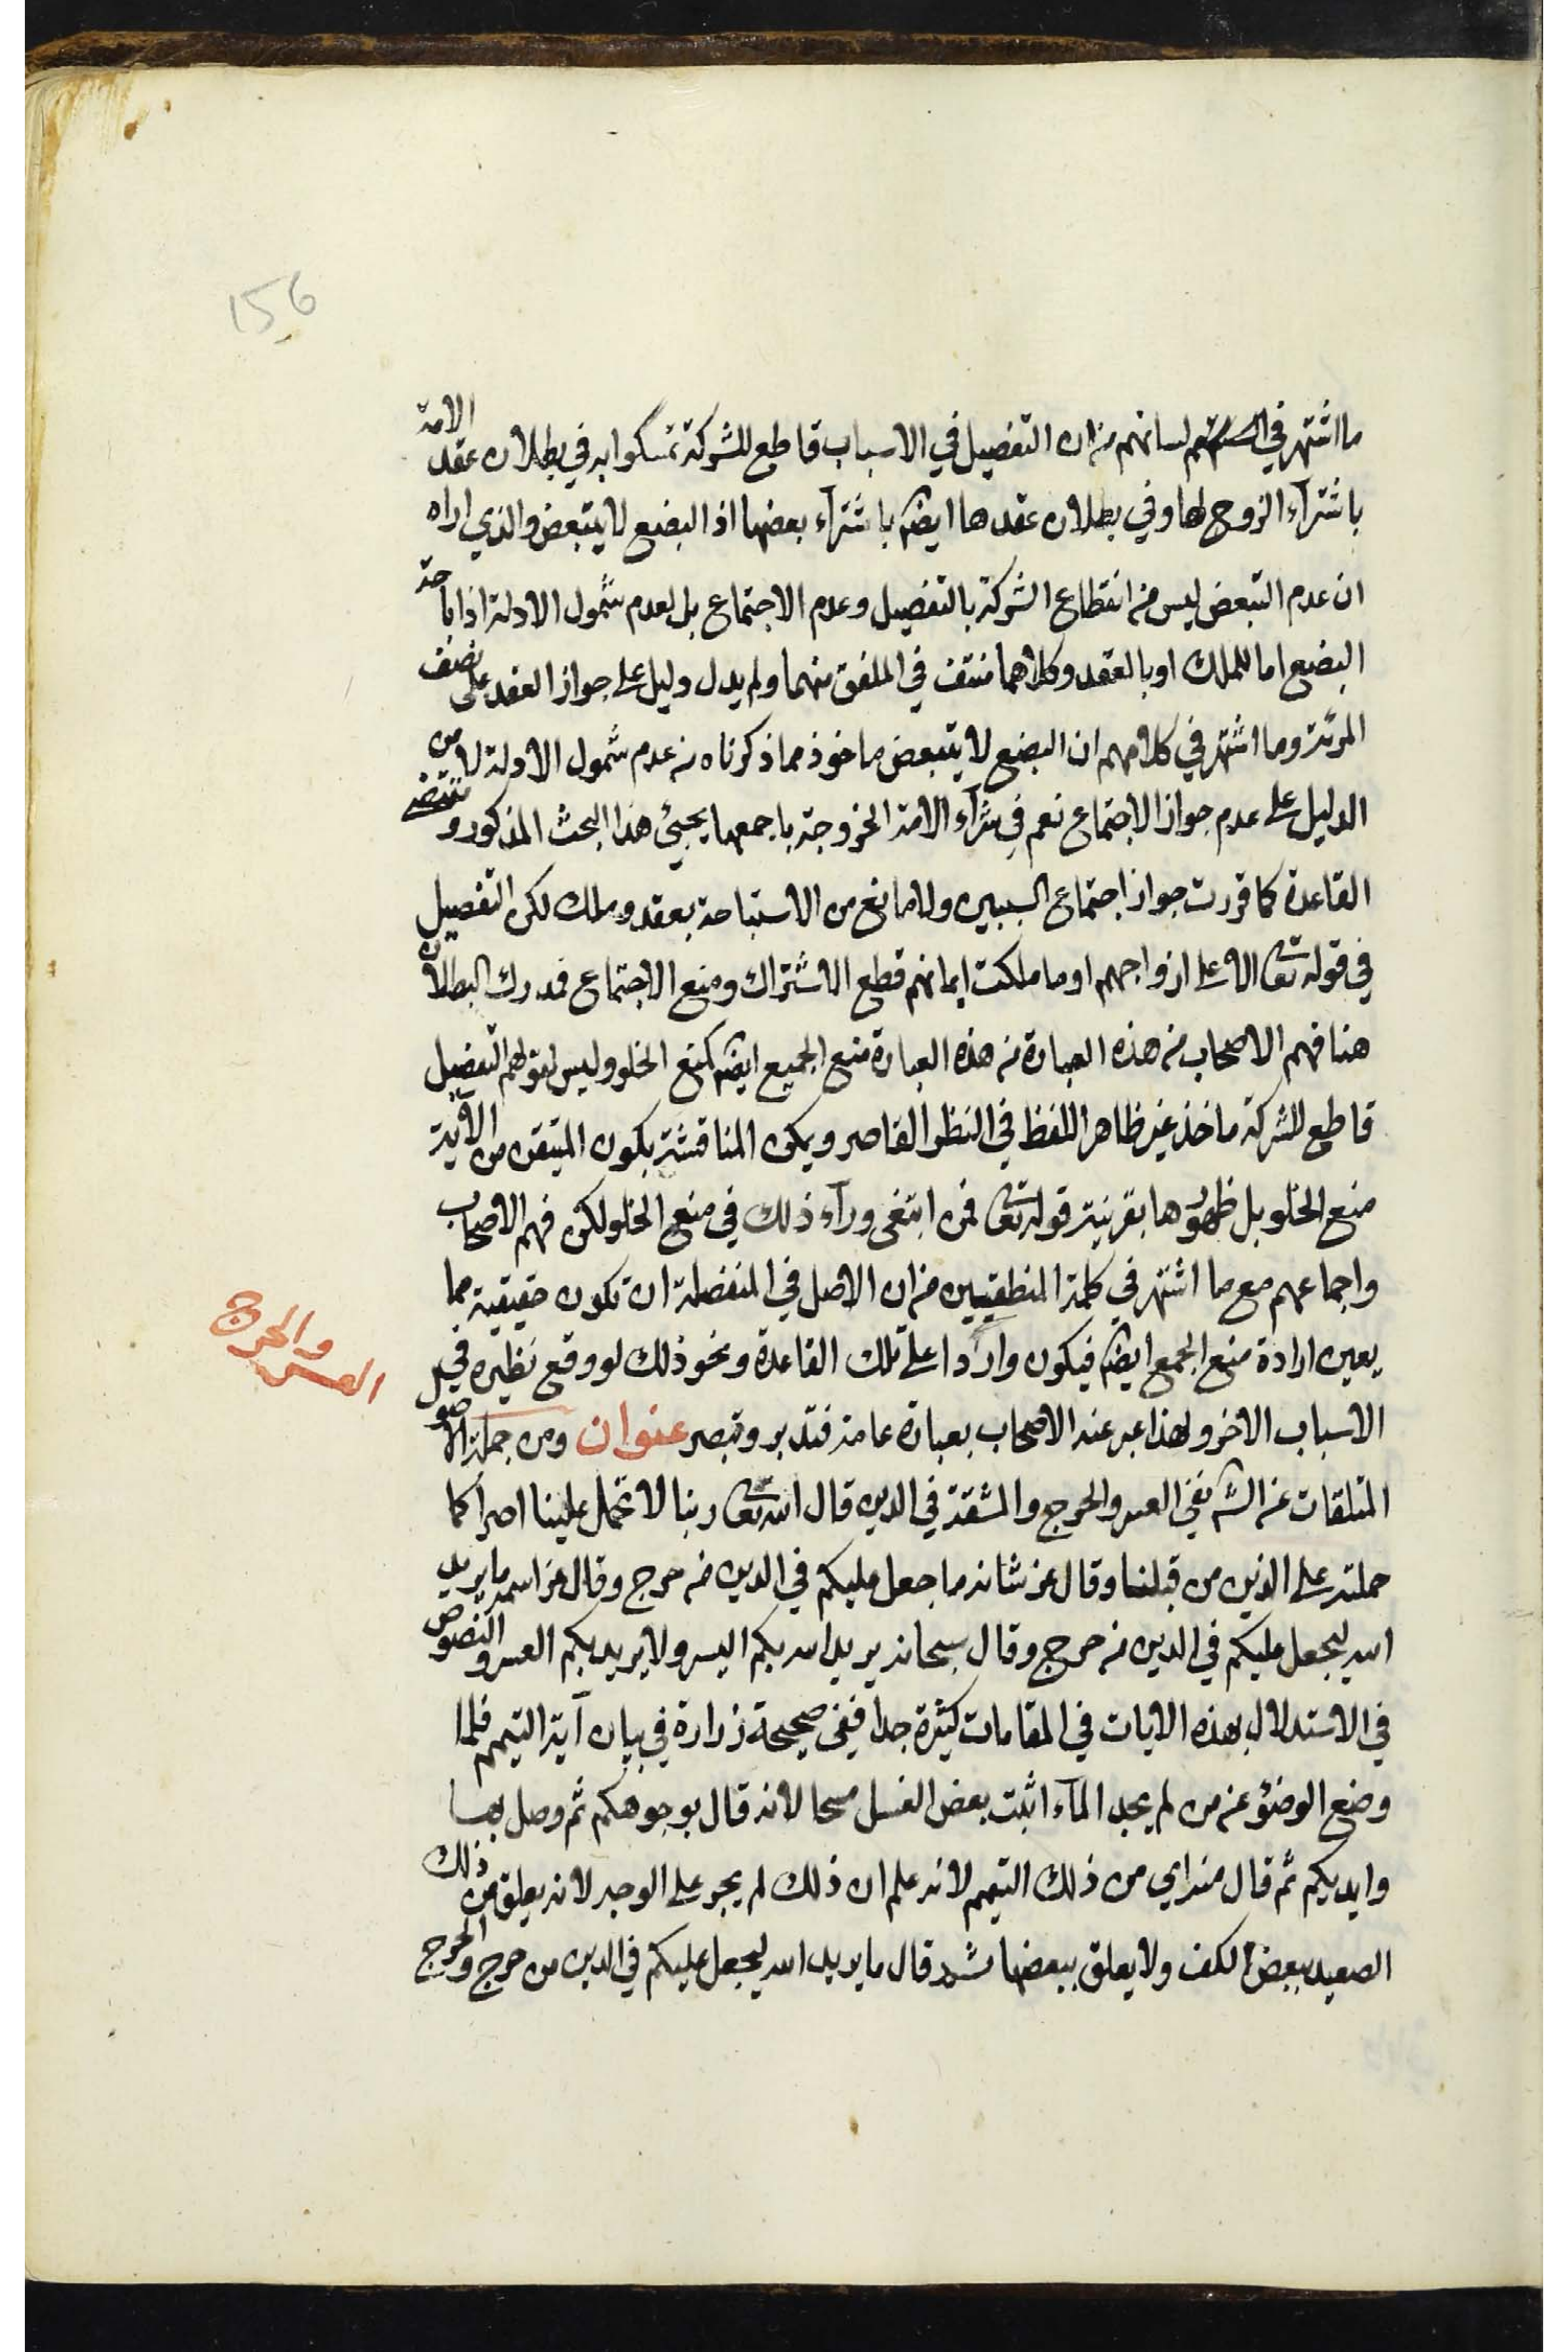 156
ما اشتهر في لسانهم من ان التفصيل في الاسباب قاطع للشركة تمسكوا به في بطلان عقد الامة
باشتراء الزوج لها وفي بطلان عقدها ايضا باشتراء بعضها اذ البضع لا يتبعض والذي اراه
ان عدم التبعض ليس من انقطاع الشركة بالتفصيل وعدم الاجتماع بل لعدم شمول الادلة اذ اباحة
البضع اما للملك او بالعقد وكلاهما منتف في الملفق منهما ولم يدل دليل على جواز العقد على نصف
المرئة وما اشتهر في كلامهم ان البضع لا يتبعض ماخوذ مما ذكرناه من عدم شمول الادلة لا من
الدليل على عدم جواز الاجتماع نعم في شرآء الامة المزوجة باجمعها يجيئ هذا البحث المذكور و مقتضى
القاعدة كما قررت جواز اجتماع السببين ولا مانع من الاستباحة بعقد وملك لكن التفصيل
في قوله تعالى الا على ازواجهم او ما ملكت ايمانهم قطع الاشتراك ومنع الاجتماع فمدرك البطلان
هنا فهم الاصحاب من هذه العبارة من هذه العبارة منع الجميع ايضا كمنع الخلو وليس لقولهم التفصيل
قاطع للشركة ماخذ غير ظاهر اللفظ في النظر القاصر ويمكن المناقشة بكون المتيقن من الآية
منع الخلو بل ظهورها بقرينة قوله تعالى فمن ابتغى ورآء ذلك في منع الخلو لكن فهم الاصحاب
واجماعهم مع ما اشتهر في كلمة المنطقيين من ان الاصل في المنفصلة ان تكون حقيقية مما
يعين ارادة منع الجمع ايضا فيكون واردا على تلك القاعدة ونحو ذلك لو وقع نظيره في
الاسباب الاخر ولهذا عبر عنه الاصحاب بعبارة عامة فتدبر وتبصر عنوان ومن جملة الاصول
العسر والحرج
المتلقات عن الشرع نفي العسر والحرج والمشقة في الدين قال الله تعالى ربنا لا تحمل علينا اصرا كما
حملته على الذين من قبلنا وقال عز شانه ما جعل عليكم في الدين من حرج وقال عز اسمه ما يريد
الله ليجعل عليكم في الدين من حرج وقال سبحانه يريد الله بكم اليسر ولا يريد بكم العسر والنصوص
في الاستدلال بهذه الايات في المقامات كثيرة جدا ففي صحيحة زرارة في بيان آية التيمم فلما
وضع الوضؤ عن من لم يجد المآء اثبت بعض الغسل مسحا لانه قال بوجوهكم ثم وصل بها
وايديكم ثم قال منه اي من ذلك التيمم لانه علم ان ذلك لم يجر على الوجه لانه يعلق من ذلك
الصعيد ببعض الكف ولا يعلق ببعضها ثم قال ما يريد الله ليجعل عليكم في الدين من حرج والحرج